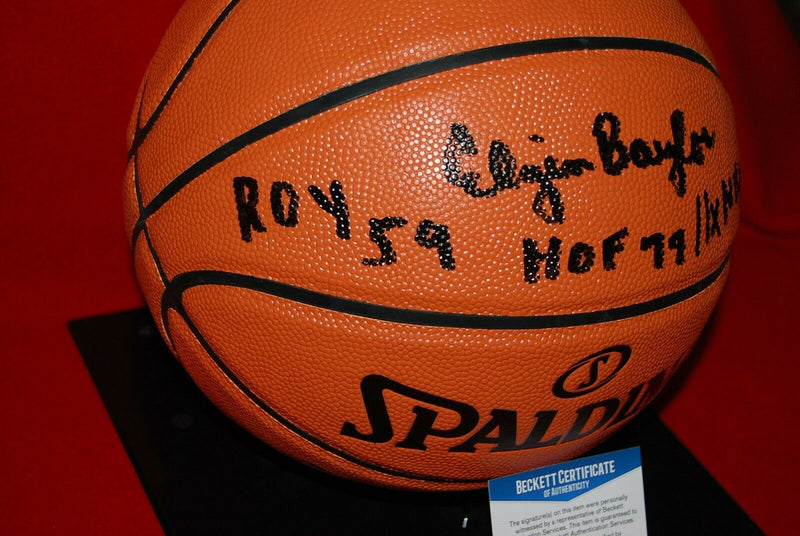 Elgin Baylor
ROY 59
HOF 77 11x NB
S
SPALDIN
BECKETT CERTIFICATE
OF AUTHENTICITY
The signature(s) on this item were personally
witnessed by a representative of Beckett
Authentication Services. This item is guaranteed to
Authentication Services.
by